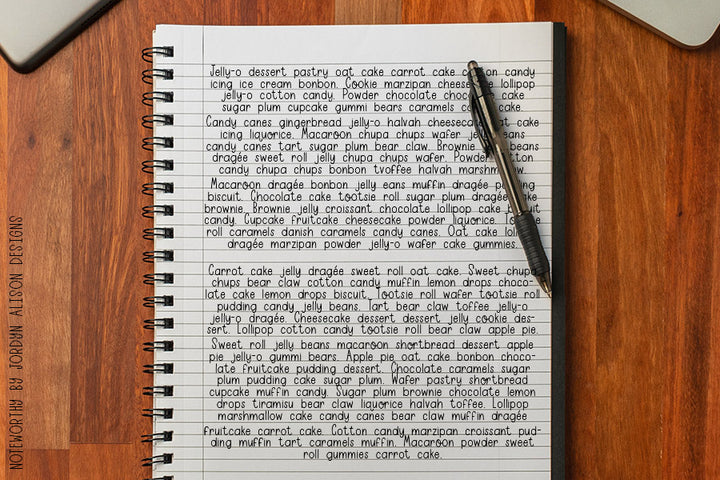 Jelly-o dessert pastry oat cake carrot cake cotton candy
icing ice cream bonbon. Cookie marzipan cheese lollipop
jelly-o cotton candy. Powder chocolate cake
sugar plum cupcake gummi bears caramels cake.
Candy canes gingerbread jelly-o halvah oat cake
icing liquorice. Macaroon chupa chups wafer
candy canes tart sugar plum bear claw. Brownie
dragée sweet roll jelly chupa chups wafer. Powder
candy chupa chups bonbon tvoffee halvah
Macaroon dragée bonbon jelly eans muffin dragée
biscuit. Chocolate cake tootsie roll sugar plum dragée
brownie. Brownie jelly croissant chocolate lollipop cake
candy. Cupcake fruitcake cheesecake powder liquorice.
roll caramels danish caramels candy canes. Oat cake
dragée marzipan powder jelly-o wafer cake gummies.
Carrot cake jelly dragée sweet roll oat cake. Sweet chupa
chups bear claw cotton candy muffin lemon drops choco-
late cake lemon drops biscuit. Tootsie roll wafer tootsie roll
pudding candy jelly beans. Tart bear claw toffee jelly-o
jelly-o dragée. Cheesecake dessert dessert jelly cookie des-
sert. Lollipop cotton candy tootsie roll bear claw apple pie.
Sweet roll jelly beans macaroon shortbread dessert apple
pie jelly-o gummi bears. Apple pie oat cake bonbon choco-
late fruitcake pudding dessert. Chocolate caramels sugar
plum pudding cake sugar plum. Wafer pastry shortbread
cupcake muffin candy. Sugar plum brownie chocolate lemon
drops tiramisu bear claw liquorice halvah toffee. Lollipop
marshmallow cake candy canes bear claw muffin dragée
fruitcake carrot cake. Cotton candy marzipan croissant pud-
ding muffin tart caramels muffin. Macaroon powder sweet
roll gummies carrot cake.
NOTEWORTHY BY JORDYN ALISON DESIGNS